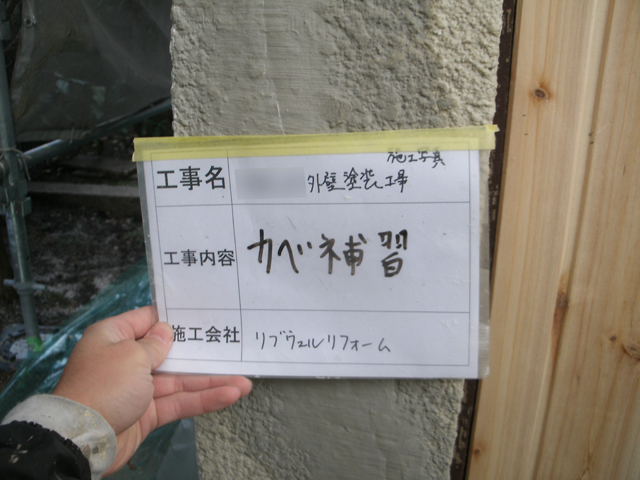 施工写真
工事名 外壁塗装工事
工事内容 カベ補習
施工会社 リブウェルリフォーム